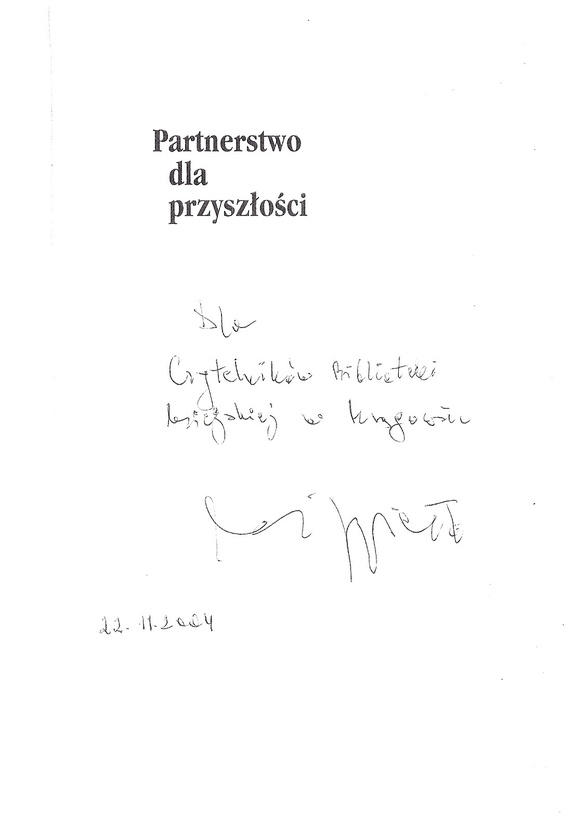 Partnerstwo
dla
przyszłości
Dla
Czytelników Biblioteki
Miejskiej w
22.11.2004